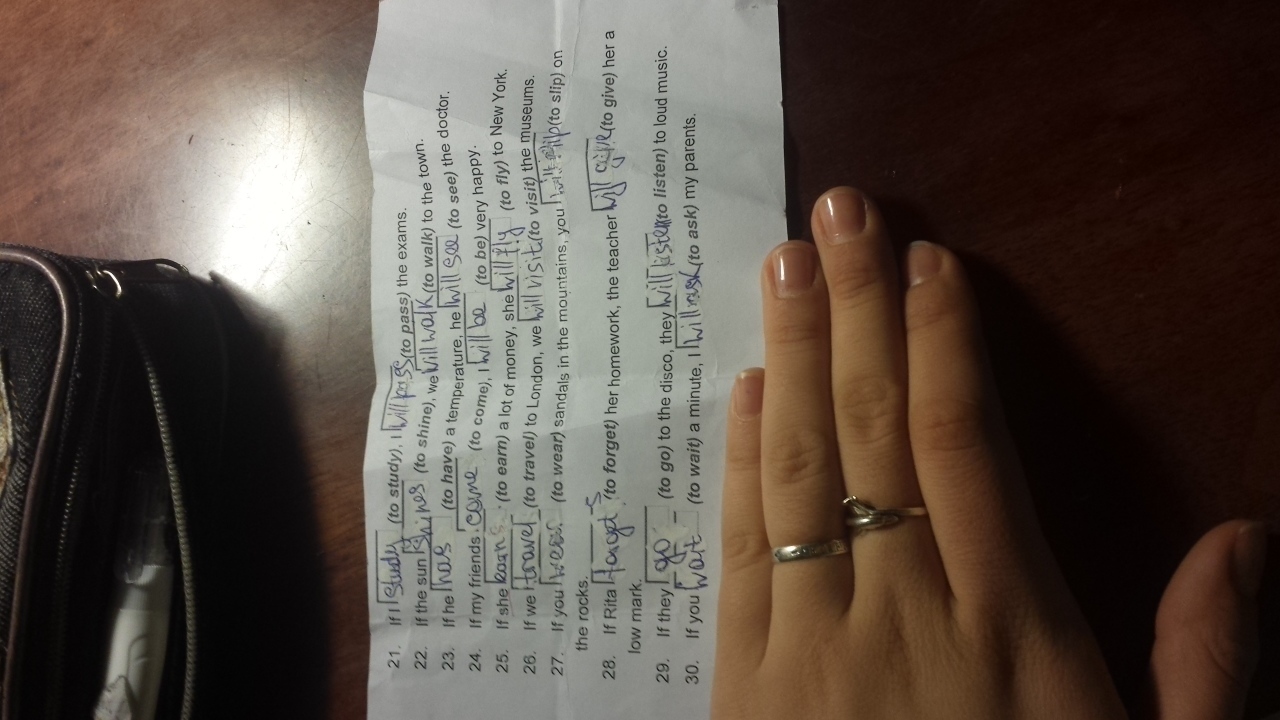 21. If I study (to study), I will pass (to pass) the exams.
22. If the sun shines (to shine), we will walk (to walk) to the town.
23. If he has (to have) a temperature, he will see (to see) the doctor.
24. If my friends come (to come), I will be (to be) very happy.
25. If she earns (to earn) a lot of money, she will fly (to fly) to New York.
26. If we travel (to travel) to London, we will visit (to visit) the museums.
27. If you wear (to wear) sandals in the mountains, you will slip (to slip) on
the rocks.
28. If Rita forgets (to forget) her homework, the teacher will give (to give) her a
low mark.
29. If they go (to go) to the disco, they will listen (to listen) to loud music.
30. If you wait (to wait) a minute, I will ask (to ask) my parents.